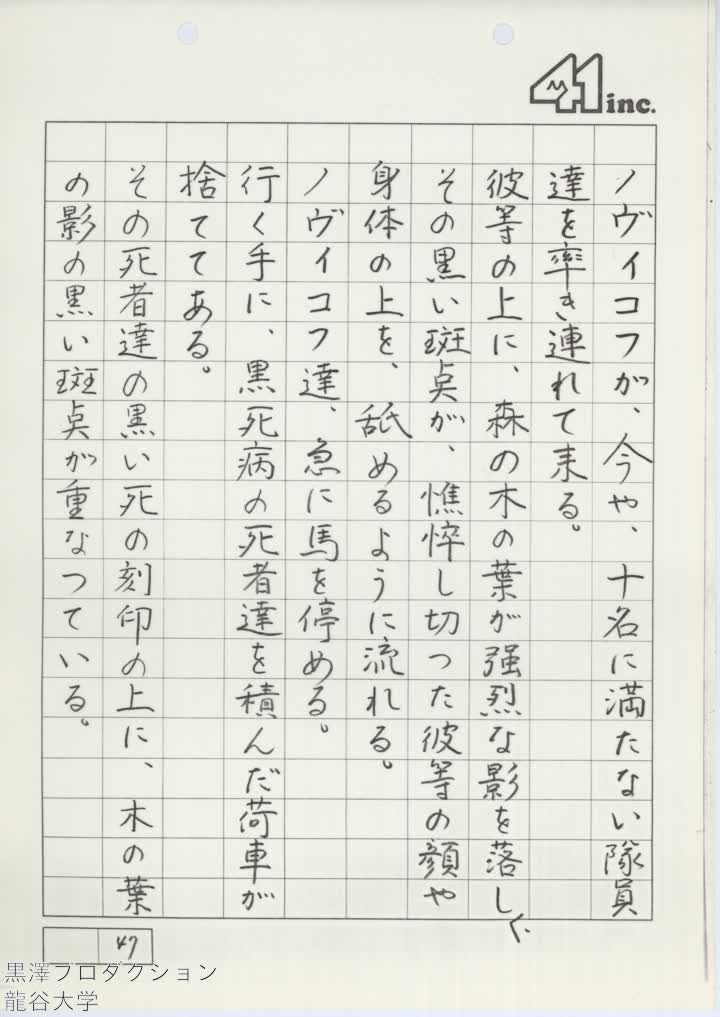 41 inc.
ノヴィコフが、今や、十名に満たない隊員
達を率き連れて来る。
彼等の上に、森の木の葉が強烈な影を落し、
その黒い斑点が、憔悴し切つた彼等の顔や
身体の上を、舐めるように流れる。
ノヴィコフ達、急に馬を停める。
行く手に、黒死病の死者達を積んだ荷車が
捨ててある。
その死者達の黒い死の刻印の上に、木の葉
の影の黒い斑点が重なつている。
47
黒澤プロダクション
龍谷大学